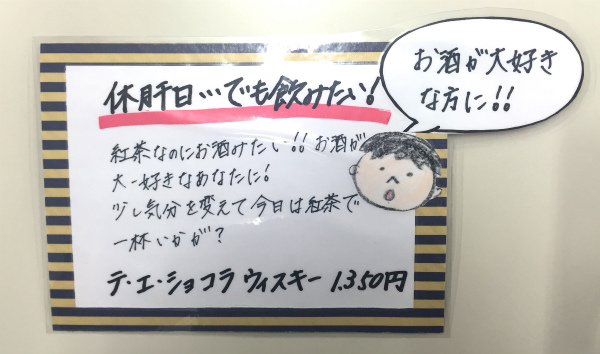 休肝日…でも飲みたい!
お酒が大好き
な方に!!
紅茶なのにお酒みたい!!お酒が
大一好きなあなたに!
少し気分を変えて今日は紅茶で
一杯いかが?
テ・エ・ショコラ ウィスキー 1,350円